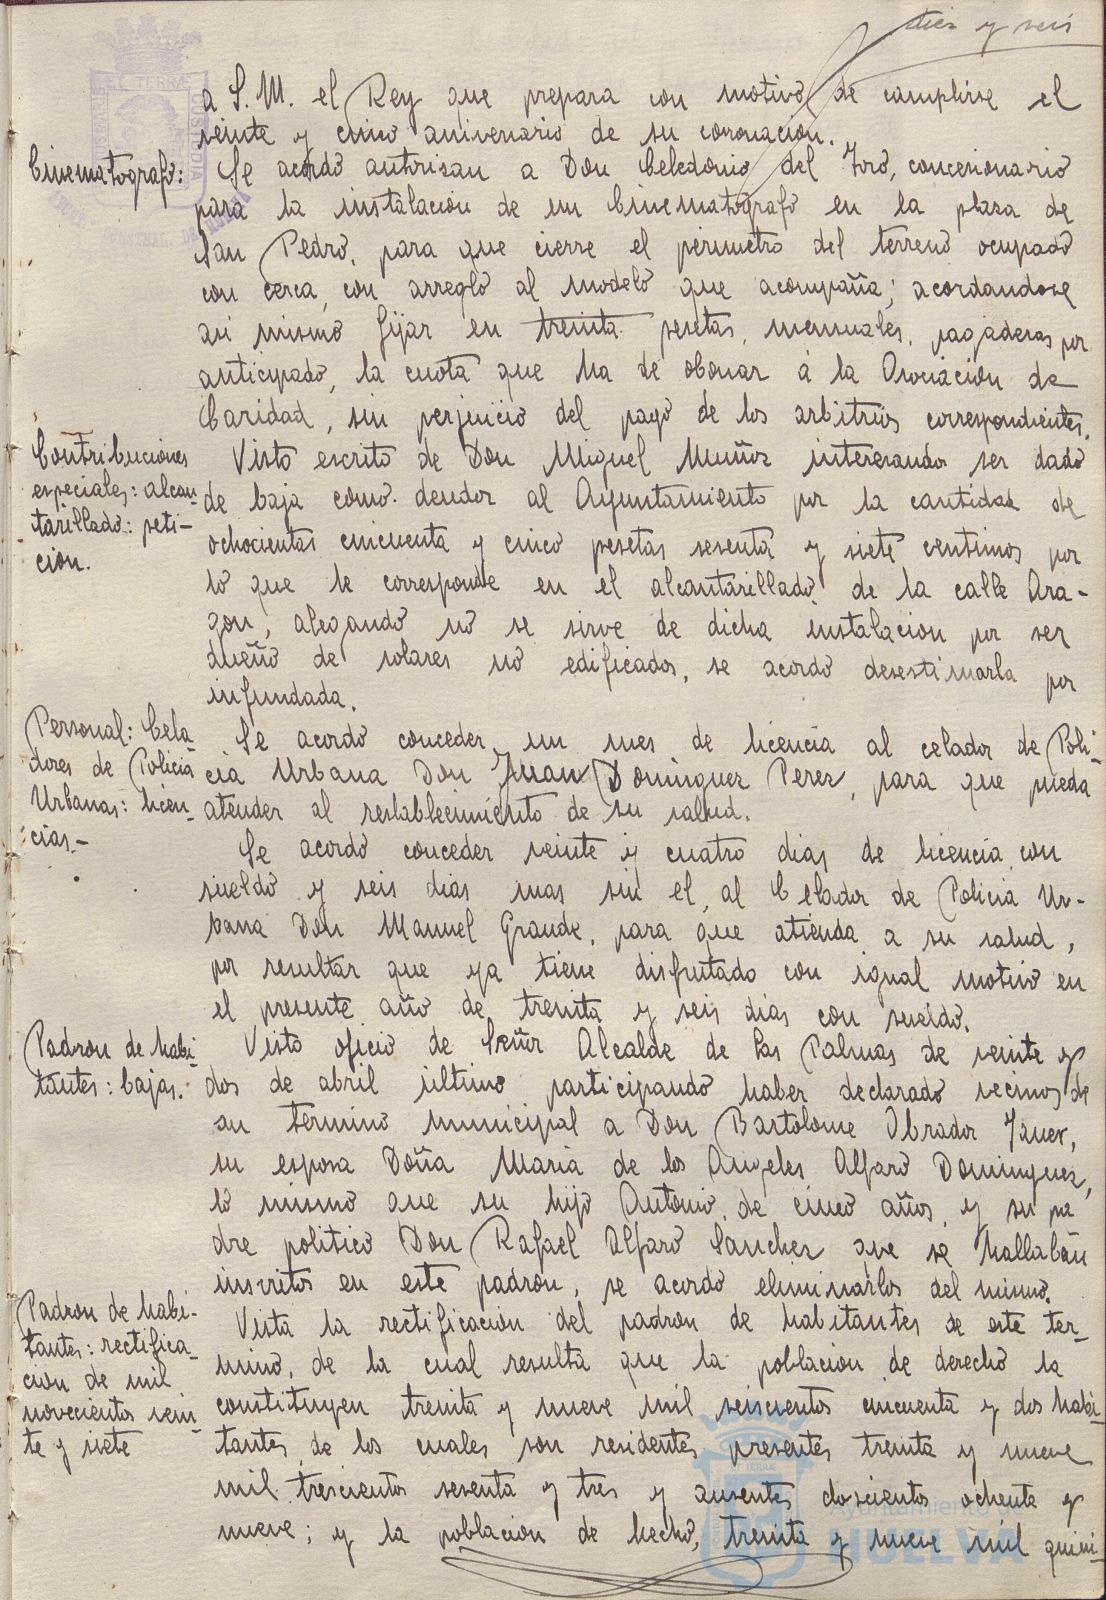 diez y seis
a S. M. el Rey que prepara con motivo de cumplirse el
veinte y cinco aniversario de su coronacion.
Cinematografo:
Se acordó autorisan a Don Celedonio del Toro, concesionario
para la instalacion de un Cinematografo en la plaza de
San Pedro, para que cierre el perimetro del terreno ocupado
con cerca, con arreglo al modelo que acompaña; acordandose
asi mismo fijar en treinta pesetas, mensuales, pagaderas por
anticipado, la cuota que ha de abonar á la Asociacion de
Caridad, sin perjuicio del pago de los arbitrios correspondientes.
Contribuciones
especiales: alcan-
tarillado: peti-
cion.
Visto escrito de Don Miguel Muñoz interesando ser dado
de baja como deudor al Ayuntamiento por la cantidad de
ochocientas cincuenta y cinco pesetas sesenta y siete centimos por
lo que le corresponde en el alcantarillado de la calle Ara-
gon, alegando no se sirve de dicha instalacion por ser
dueño de solares no edificados, se acordó desestimarla por
infundada.
Personal: Cela-
dores de Policia
Urbanas: licen-
cias.-
Se acordó conceder un mes de licencia al celador de Poli-
cia Urbana Don Juan Dominguez Perez, para que pueda
atender al restablecimiento de su salud.
Se acordó conceder veinte y cuatro dias de licencia con
sueldo y seis dias mas sin el, al Celador de Policia Ur-
bana Don Manuel Grande, para que atienda a su salud,
por resultar que ya tiene disfrutado con igual motivo en
el presente año de treinta y seis dias con sueldo.
Padron de habi-
tantes: bajas.
Visto oficio de Señor Alcalde de Las Palmas de veinte y
dos de abril último participando haber declarado vecinos de
su termino municipal a Don Bartolome Obrador
su esposa Doña Maria de los Angeles Alfaro Dominguez,
lo mismo que su hijo Antonio, de cinco años, y su pa
dre politico Don Rafael Alfaro Sanchez que se hallaban
inscritos en este padron, se acordó eliminarlos del mismo.
Padron de habi-
tantes: rectifica-
cion de mil
novecientos vein-
te y siete
Vista la rectificacion del padron de habitantes de este ter-
mino, de la cual resulta que la poblacion de derecho la
constituyen treinta y nueve mil seiscientos cincuenta y dos habi-
tantes, de los cuales son residentes presentes treinta y nueve
mil trescientos sesenta y tres y ausentes doscientos ochenta y
nueve; y la poblacion de hecho, treinta y nueve mil quini-
Ayuntamiento de
HUELVA